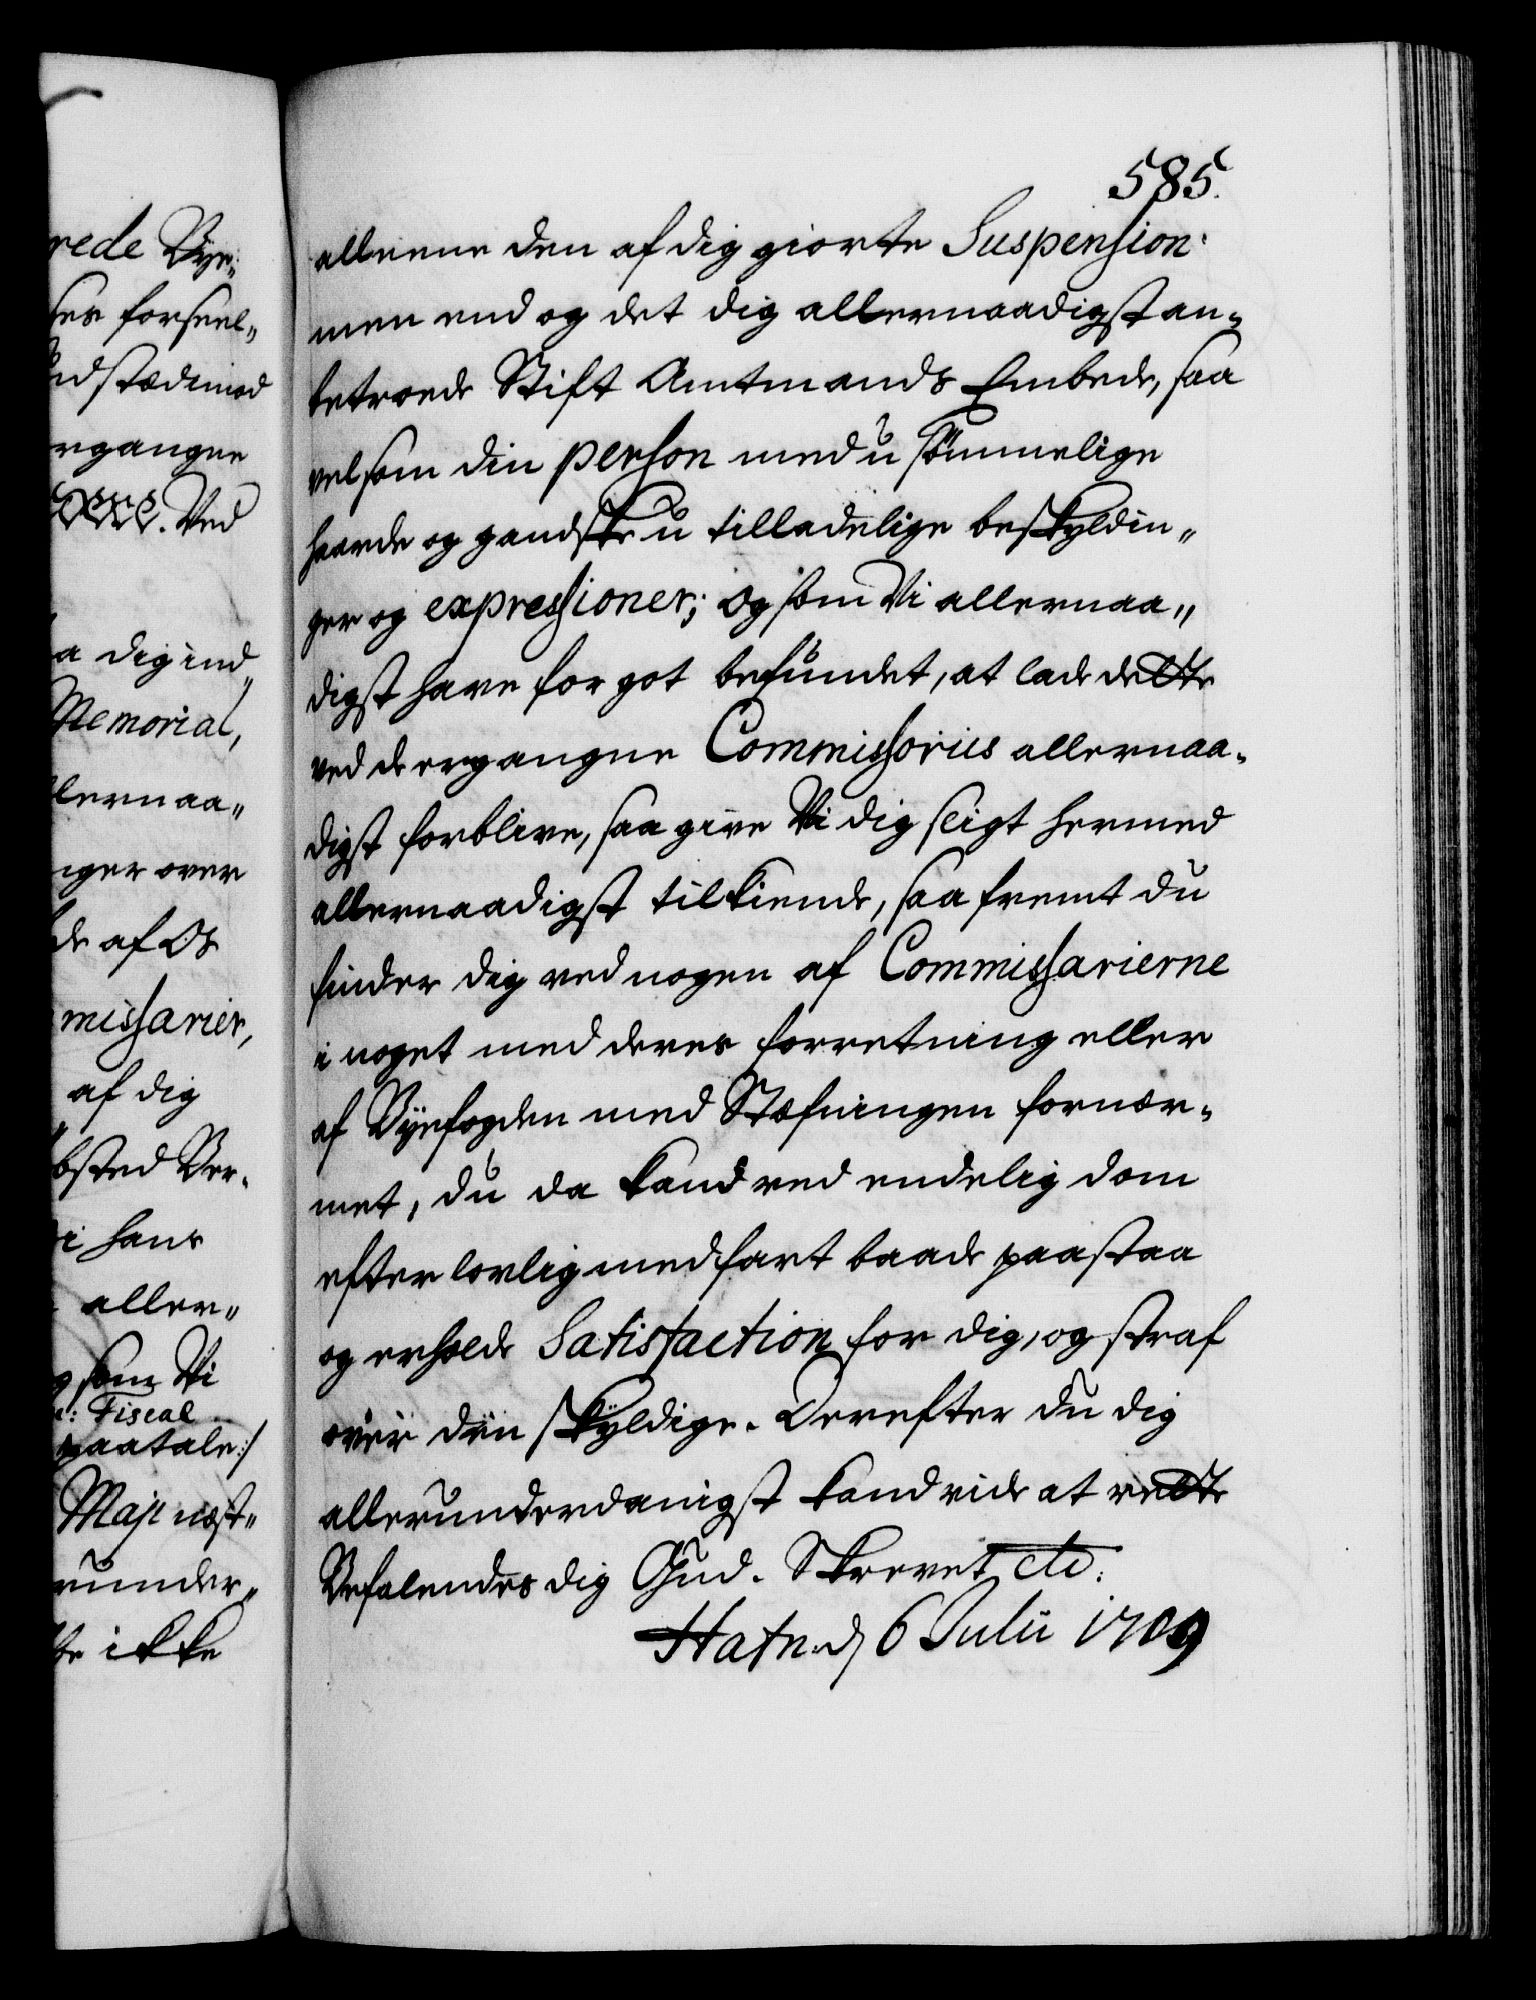 585.
alleene den af dig giorte Suspension
men end og det dig allernaadigst an-
betroede Stift Amtmands Embede, saa
velsom din person med u sømmelige
haarde og gandske u tilladelige beskyldin-
ger og expressioner; og som Vi allernaa-
digst have for got befundet, at lade dette
ved de ergangne Commissoriis allernaa-
digst forblive, saa give Vi dig sligt hermed
allernaadigst tilkiende, saafremt du
finder dig ved nogen af Commissarierne
i noget med deres forretning eller
af Byefogden med Stæfningen fornær-
met, du da kand ved endelig dom
efter lovlig medfart baade paastaa
og erholde Satisfaction for dig, og straf
over den skyldige. Derefter du dig
allerunderdanigst kand vide at rette
Befalendes dig Gud. Skrevet etc:
Hafn: d 6 Julii 1709
rede Bye-
forseel-
ergangne
Ved
dig ind-
Memorial,
allernaa-
over
af Os
missarier,
af dig
i hans
aller-
som Vi
Fiscal
paatale:/
Maji næst-
under-
ikke